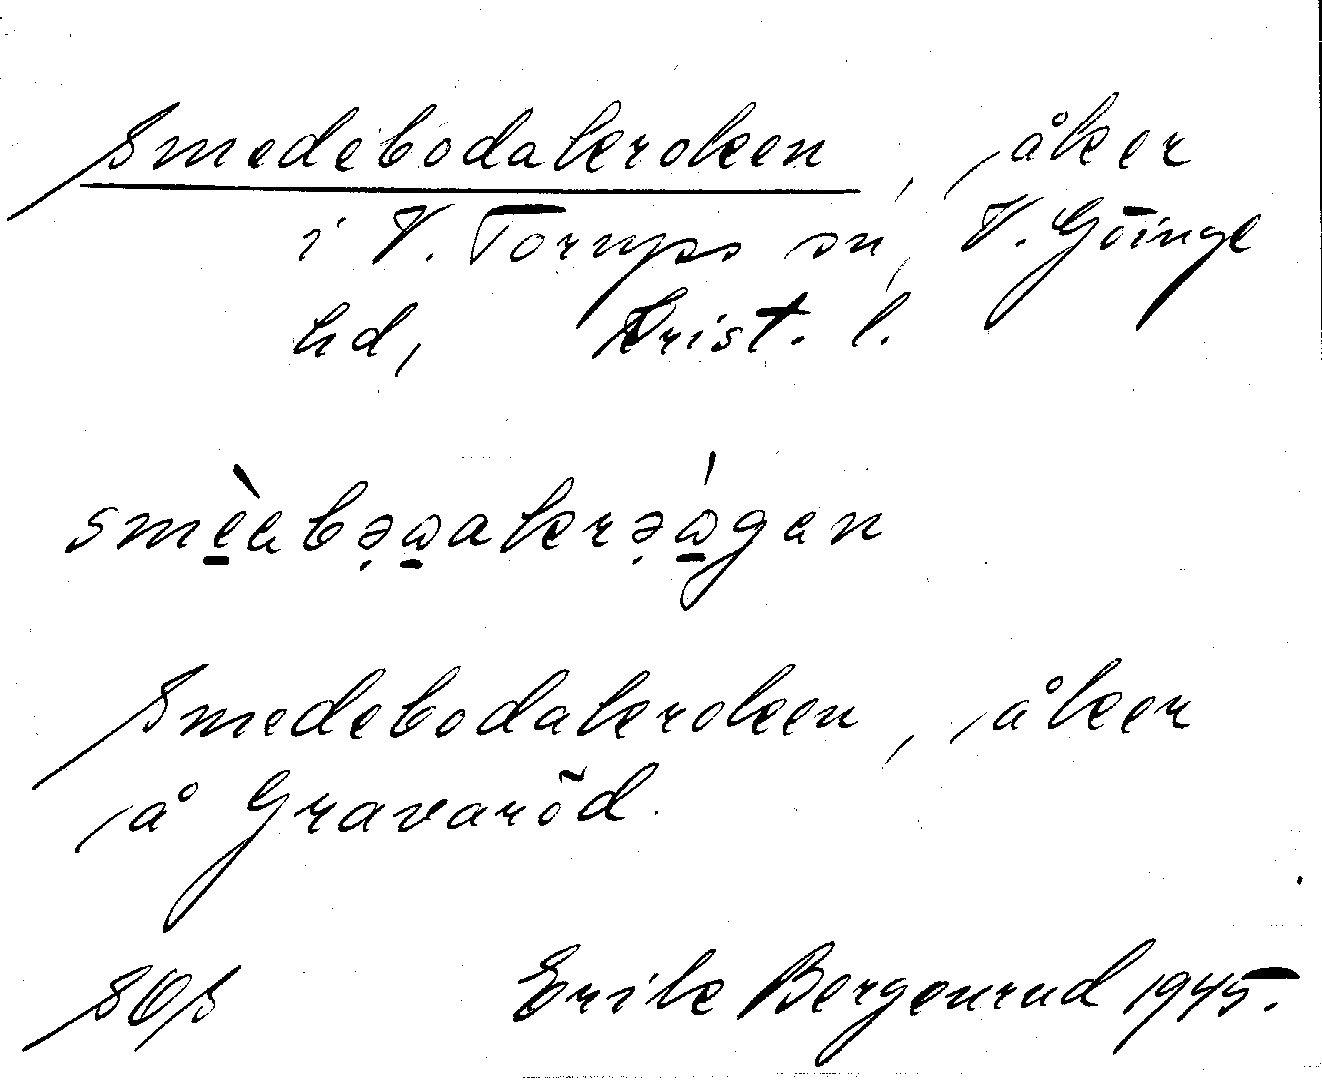 Smedebodakroken, åker
i V. Torups sn, V. Göinge
hd, Krist. l.
Smedebodakroken, åker
å Gravaröd.
SOS Erik Bergenrud 1945.